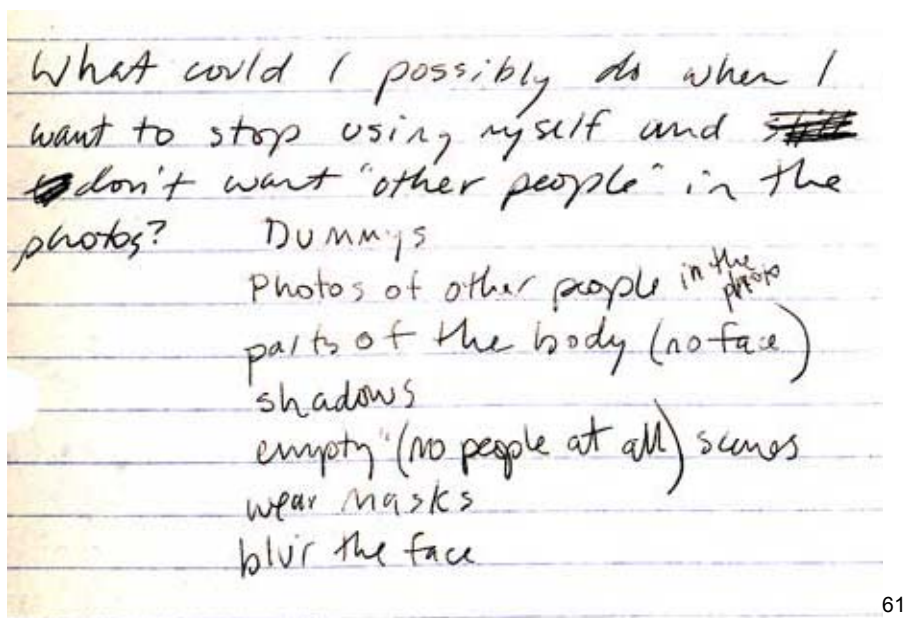 What could I possibly do when I
want to stop using myself and
don't want "other people" in the
photos? Dummys
Photos of other people in the photo
parts of the body (no face)
shadows
empty" (no people at all) scenes
wear masks
blur the face
61